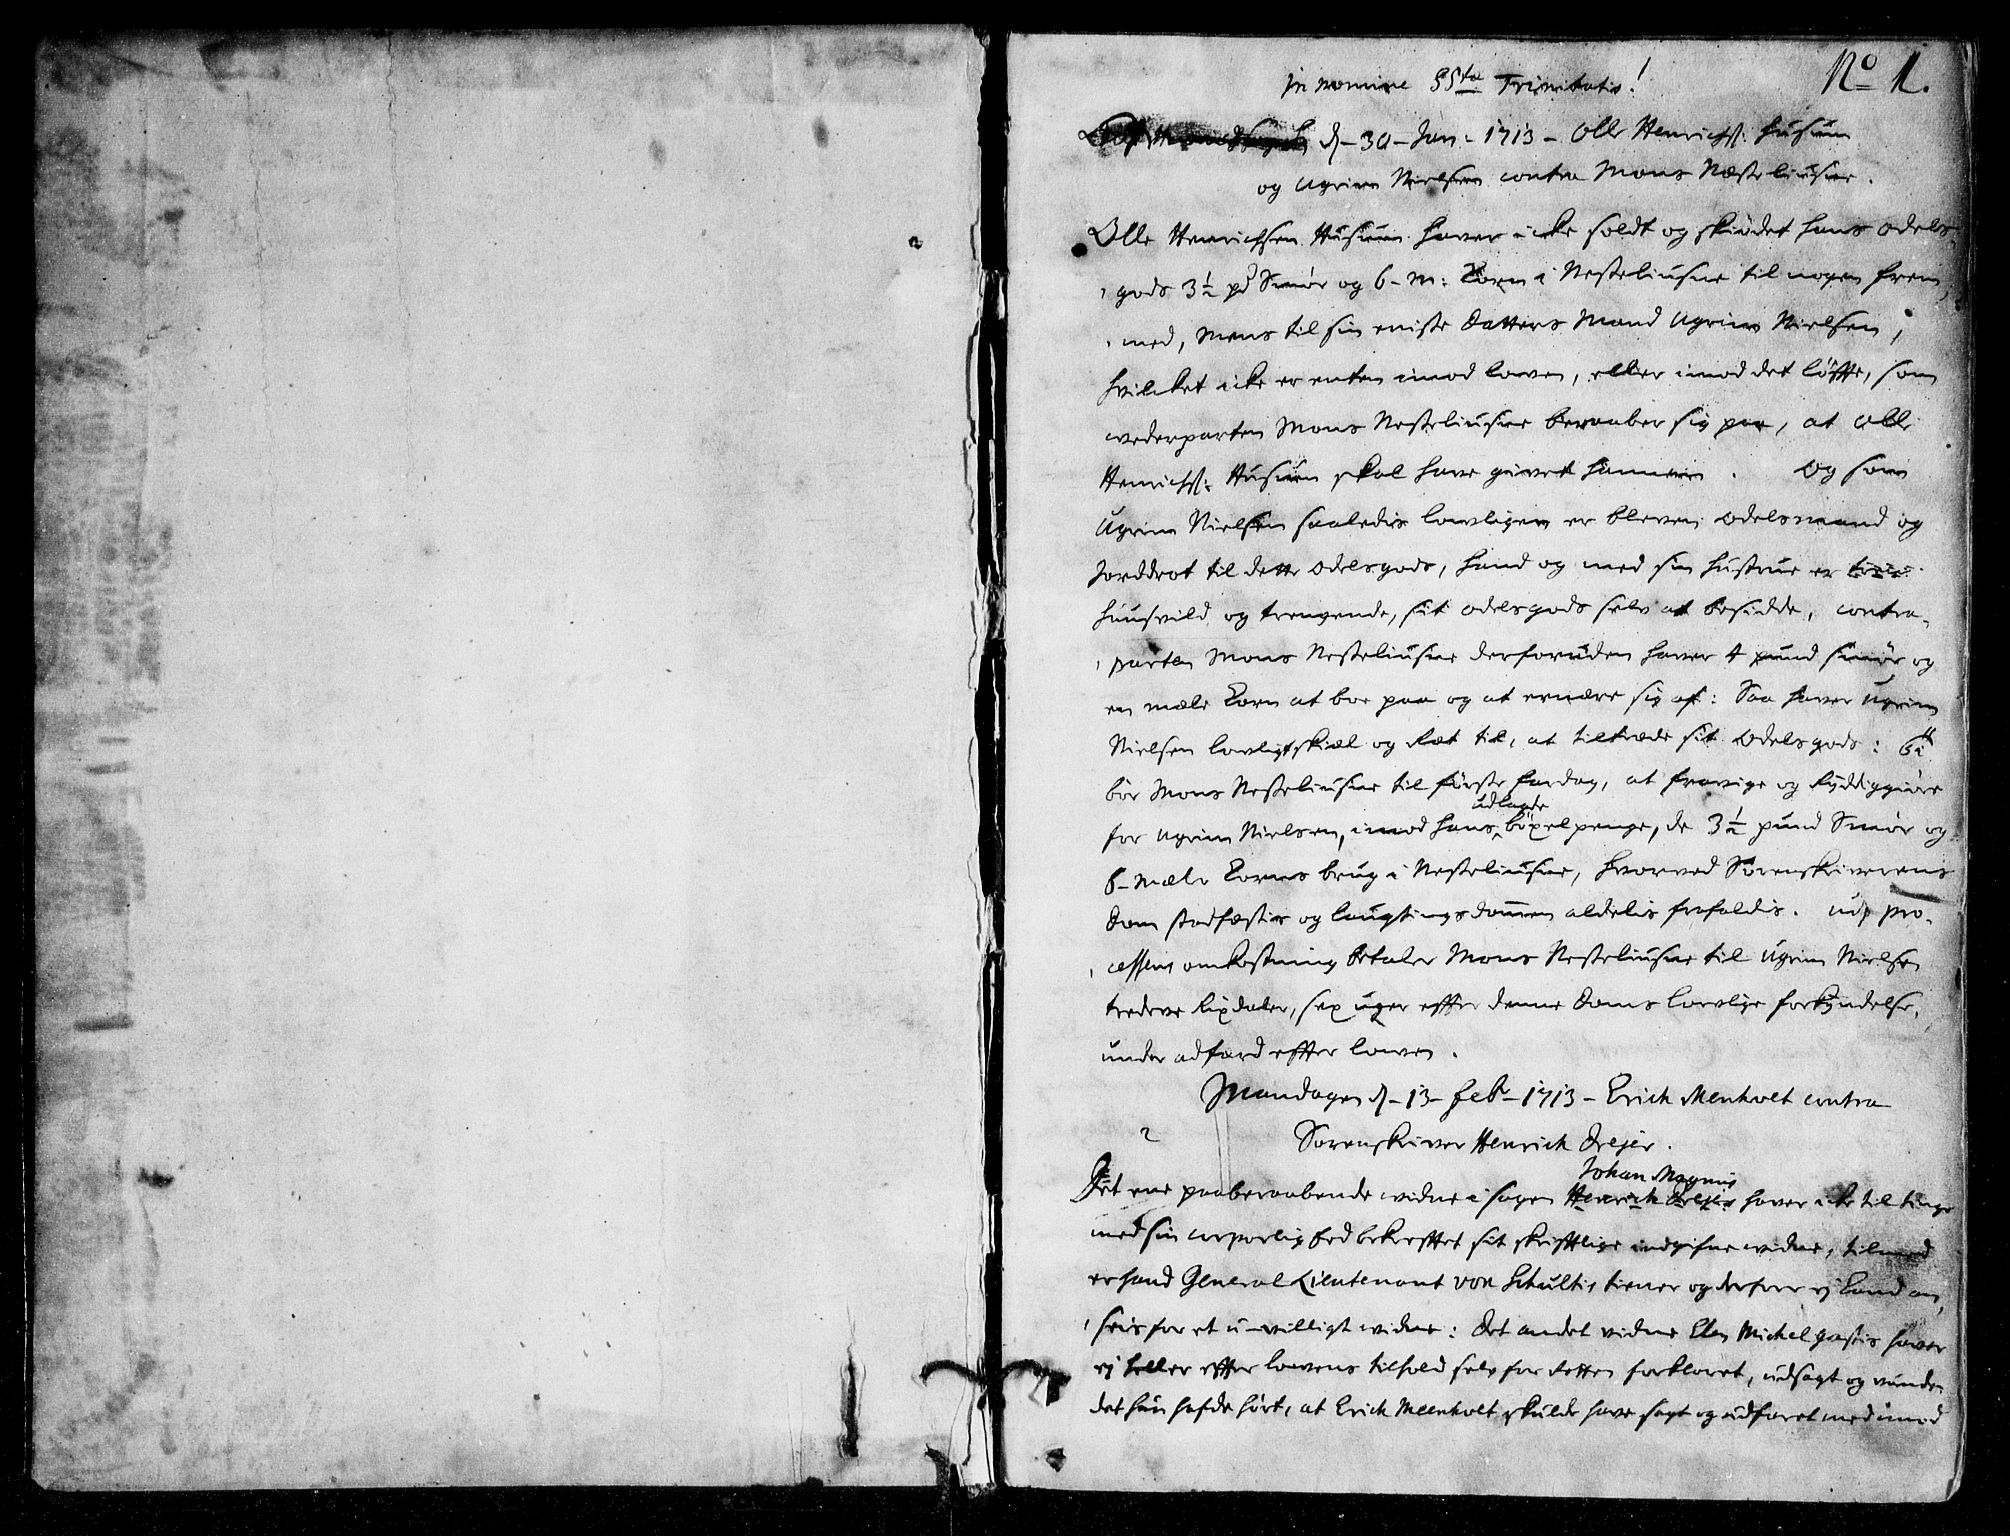 No 1.
In nomine SSta Trinitatis!
d. 30 Jan: 1713 - Olle Henrichss: Husum
og Ugrim Nielsen contra Mons Næsteliusne.
Olle Henrichsen Husum haver icke soldt og skiødet hans odels-
gods 3½ pd Smør og 6 m: Korn i Nesteliusne til nogen frem-
med, mens til sin eniste datters Mand Ugrim Nielsen,
hvilcket icke er enten imod lowen, eller imod det løffte, som
wederparten Mons Nesteliusne beraaber sig paa, at Olle
Henrichss: Husum skal have givet hannem. Og som
Ugrim Nielsen saaledis lowligen er bleven odelsmand og
Jorddrot til dette odelsgods, hand og med sin hustrue er
huusvild og trengende, sit odelsgods selv at besidde, contra-
parten Mons Nesteliusne derforuden haver 4 pund smør og
en mæle Korn at boe paa og at ernære sig af: Saa haver Ugrim
Nielsen lovligt skiel og Ræt til, at tiltræde sit odelsgods:
bør Mons Nesteliusne til første fardag, at fravige og Ryddiggiøre
for Ugrim Nielsen, imod hans udlagde bøxelpenge, de 3½ pund Smør og
6 mæle Korns brug i Nesteliusne, hvorved Sorenskriverens
dom stadfæstis og laugtingsdommen aldelis frafaldis. Udj pro-
cessens omkostning betaler Mons Nesteliusne til Ugrim Nielsen
tredeve Rixdaler, sex uger effter denne doms lovlige forkyndelse,
under adfærd effter lowen.
Mandagen d. 13 Feb 1713 - Erich Menholt contra
Sorenskriver Henrich Drejer.
Det ene paaberaabende widne i sagen Johan Magnus Henrich Drejer haver icke til tinge
med sin corporlig Eed bekrefftet sit skrifftlige indgifne widne, tilmed
er hand General Lieutenant von Schultis tiener og derfore ej kand an-
seis for et u-villigt widne: det andet vidne Elen Michel haver
ej heller effter lowens tilhold selv for retten forklaret, udsagt og vundet
det hun hafde hørt, at Erich Meenholt skulde have sagt og udfaret med imod